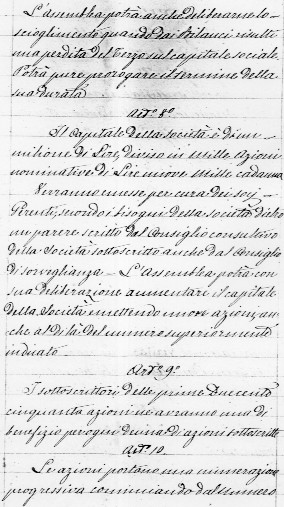 L'Assemblea potrà anche deliberarne lo
scioglimento quando dai bilanci risulti
una perdita del terzo sul capitale sociale.
Potrà pure prorogare il termine della
sua durata.
Art.º 8º
Il Capitale della società è di un
milione di Lire, diviso in Mille Azioni
nominative di Lire mille cadauna.
Verranno emesse per cura dei soci
Gerenti, secondo i bisogni della Società dietro
un parere scritto del Consiglio consultivo
della Società sottoscritto anche dal Consiglio
di sorveglianza - L'Assemblea potrà con
sua deliberazione aumentare il capitale
della Società emettendo nuove azioni, an
che al di là del numero superiormente
indicato.
Art.º 9º
I sottoscrittori delle prime Duecento
cinquanta azioni ne avranno una di
benefizio per ogni decina di azioni sottoscritte
Art. 10.
Le azioni portano una numerazione
progressiva cominciando dal numero